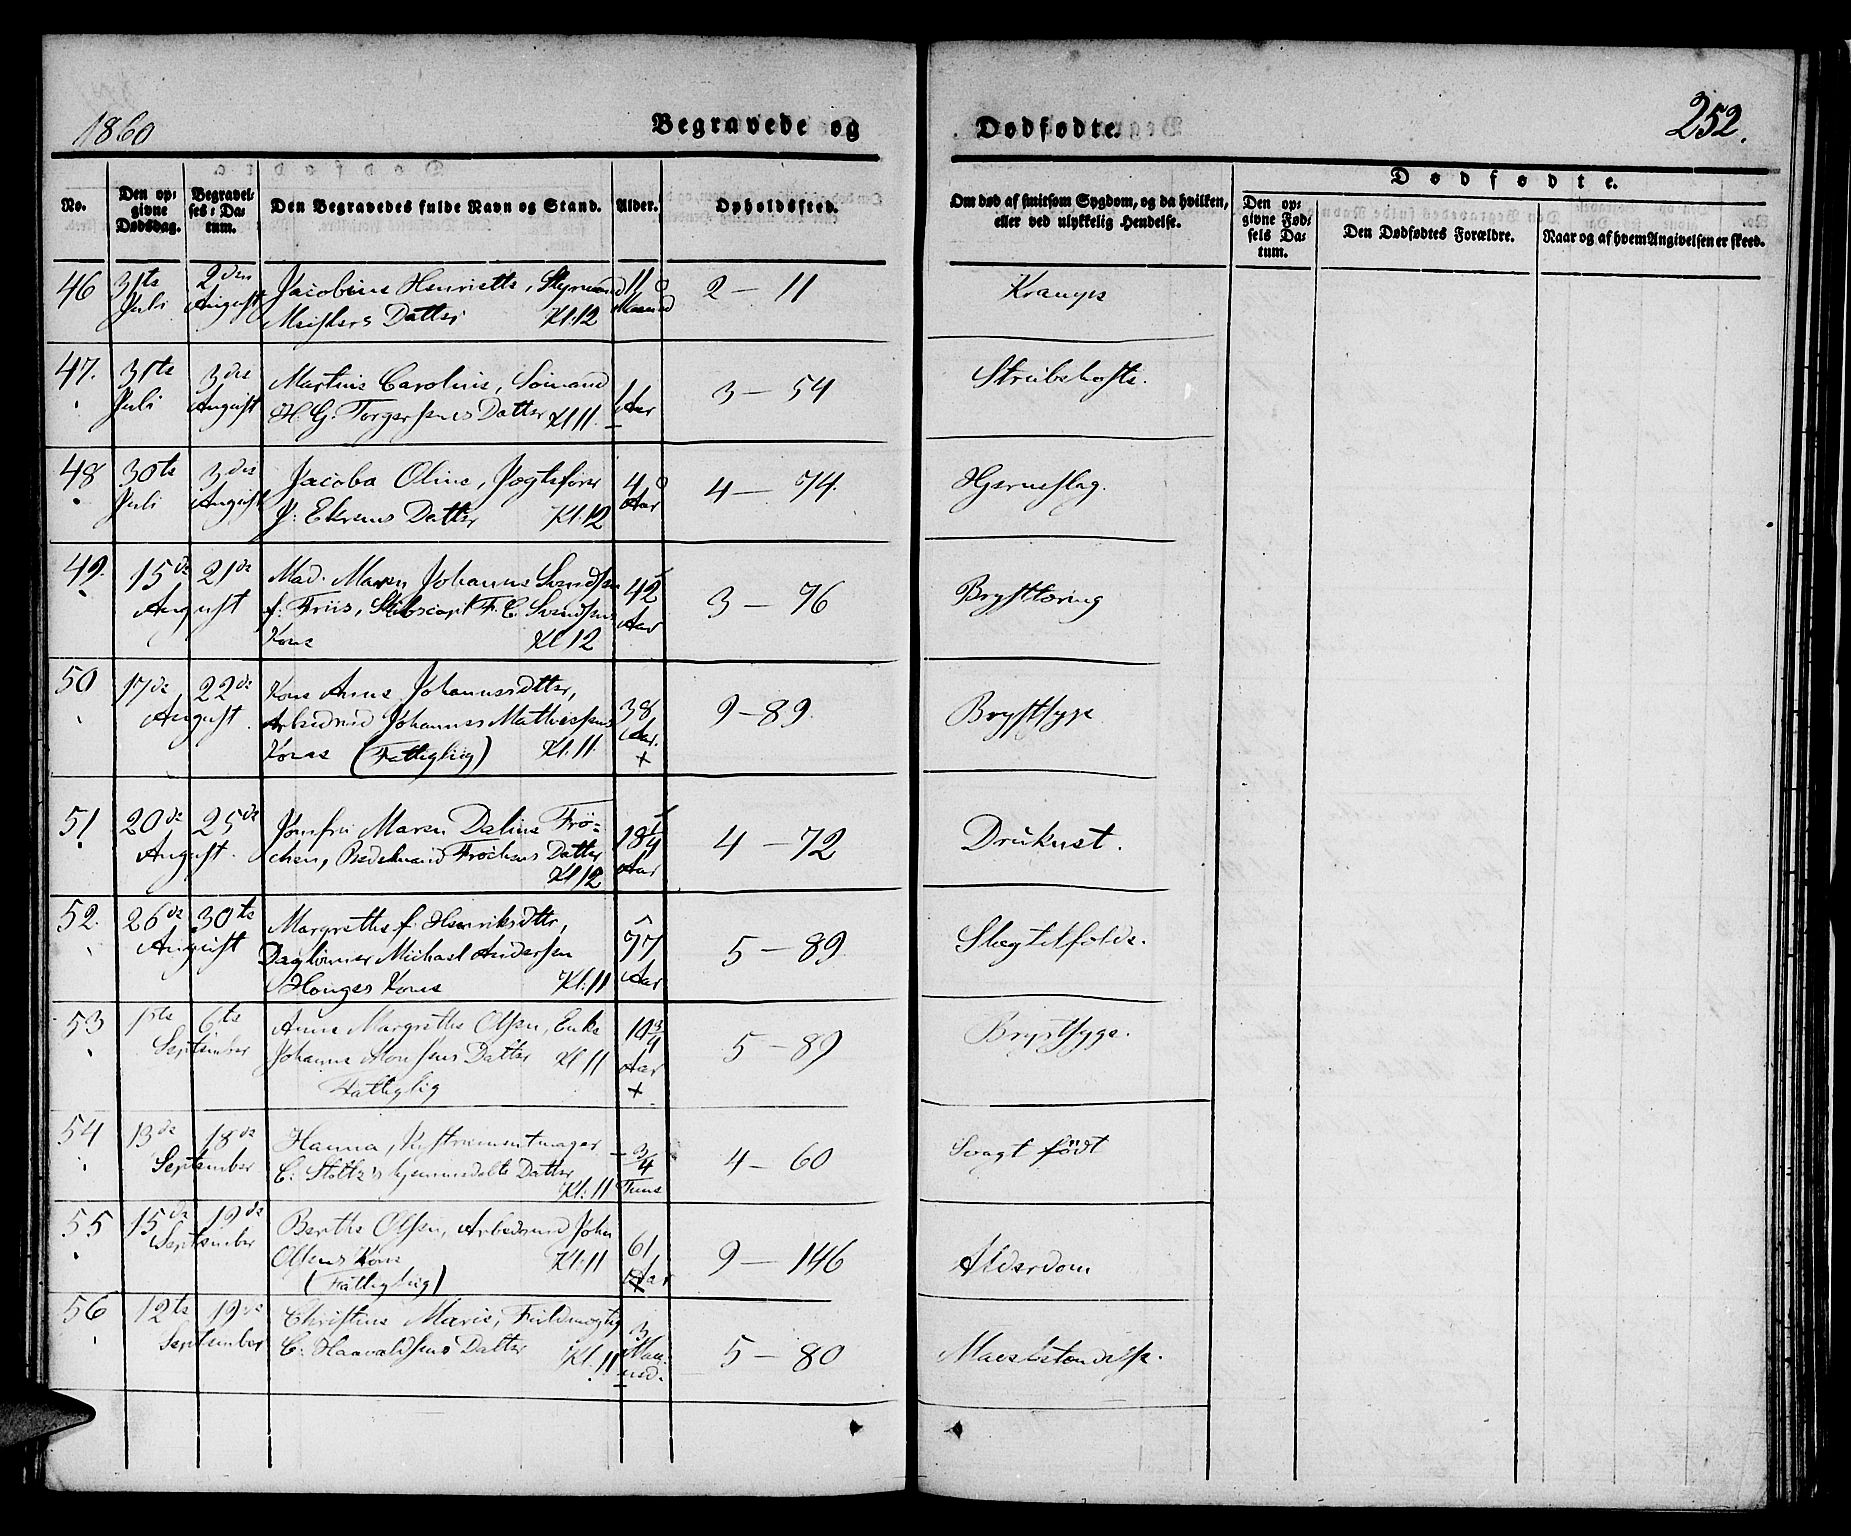 1860
Begravede og
Dødfødte.
252.
No.
Den op-
givne
Dødsdag.
Begravel-
ses-Da-
tum.
Den Begravedes fulde Navn og Stand.
Alder.
Opholdssted.
Om død af smitsom Sygdom, og da hvilken,
eller ved ulykkelig Hendelse.
Dødfødte.
Den op-
givne Fød-
sels Da-
tum.
Den Dødfødtes Forældre.
Naar og af hvem Angivelsen er skeed.
46 31te 2den Jacobine Henriette, Styrmand 11 2 - 11 Krampe
Juli August Meisters Datter Kl.12 Maaned
47. 31te 3die Martine Caroline, Sömand 1 3 - 54
Juli August H. G. Torgersens Datter Kl 11. Aar
48 30te 3die Jacoba Oline, Jögtefører 4 4 - 74. Hjerneslag.
Juli August J. Ekrens Datter Kl.12 Aar
49. 15de 21de Mad. Maren Johanne Svendsen 42 3 - 76 Brysttæring
August f. Friis, F. C. Svendsens Aar
Kone Kl 12
50 17de 22de Kone Anne Johannesdtter, 38 9 - 89. Brystsyge
August Arbeidsmd Johannes Mathiesens Aar.
Kone (Fattiglig) Kl.11. +
51 20de 25de Jomfru Maren Daline Frö- 18¼ 4 - 72 Druknet.
August. chen, Bedemand Fröchens Datter Aar
Kl 12
52. 26de 30te Margrethe f. Henriksdtter, 77 5 - 89.
August Daglönner Michael Andersen Aar
Houges Kone Kl.11
53 1ste 6te Anne Margrethe Olsen, Enke 10¾ 5 - 89 Brystsyge.
September Johanne Monsens Datter Kl 11 Aar
Fattiglig +
54 13de 18de Hanna, Instrumentmager ¾ 4 - 60 Svagt födt
September C. Stoltz's hjemmedøbte Datter Time
Kl.11
55 15de 19de Berthe Olsen, Arbeidsmd John 61 9 - 146 Alderdom
September Olsens Kone Kl.11 Aar
(Fattiglig) +
56 12te 19de Christine Marie, Fuldmægtig 3 5 - 80
September C. Haavaldsens Datter Kl.11 Maa-
ned.